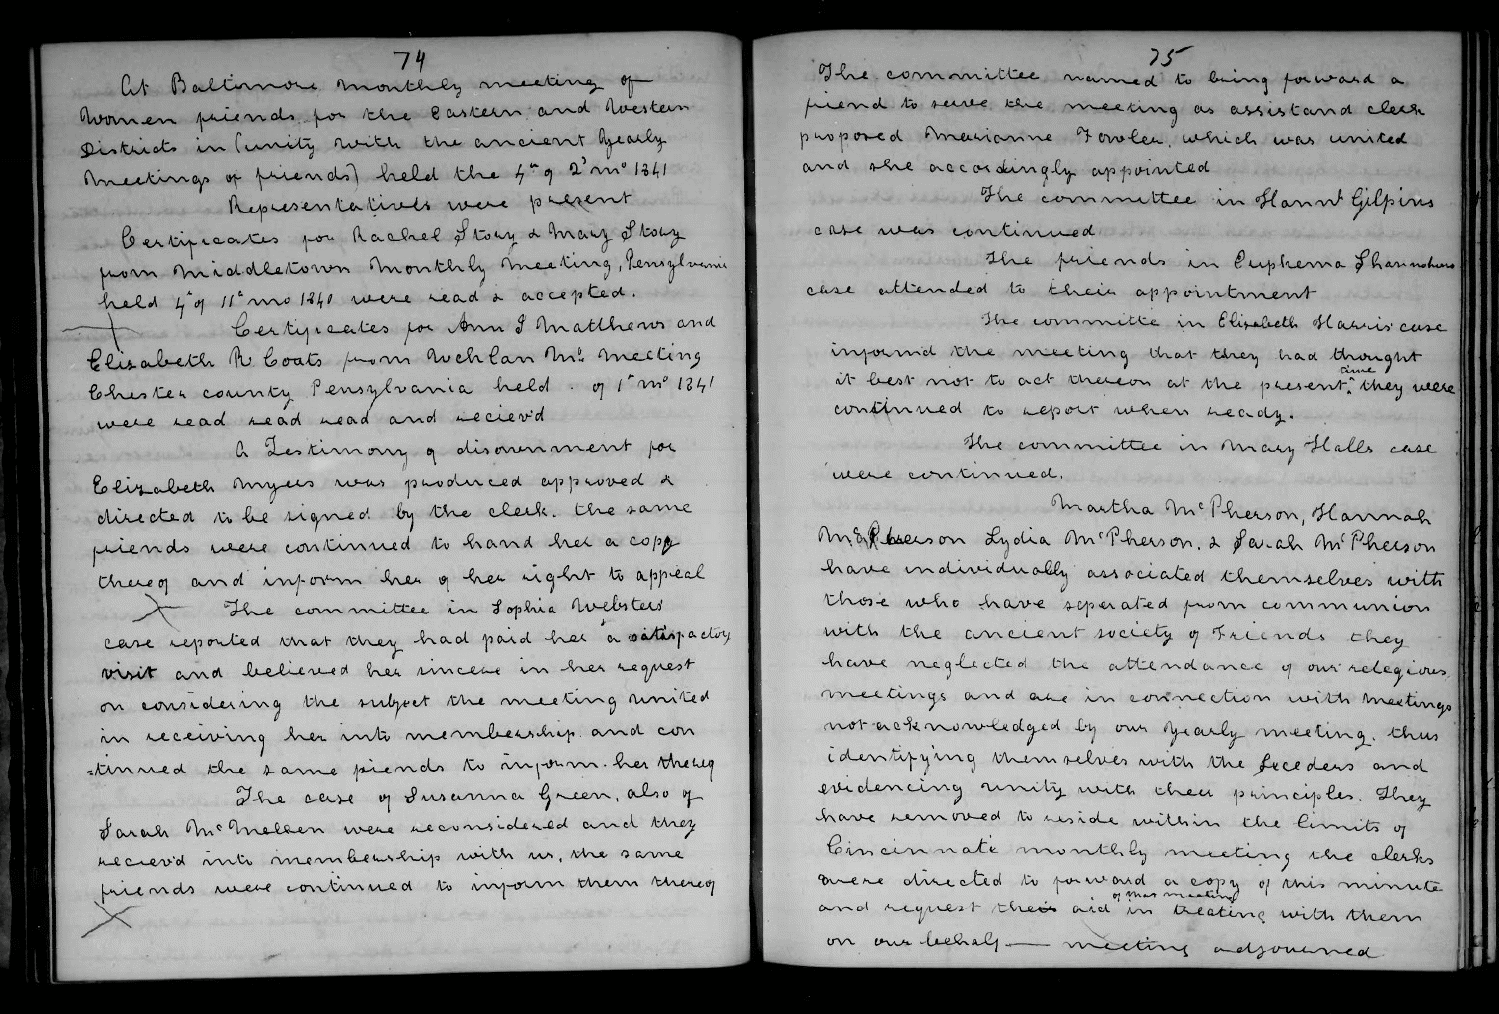 74
At Baltimore Monthly meeting of
Women friends for the Eastern and Western
Districts in (unity with the ancient Yearly
Meetings of friends) held the 4th of 2d mo 1841
Representatives were present
Certificates for Rachel Story & Mary Story
from Middletown Monthly Meeting, Pensylvania
held 4th of 11th mo 1840 were read & accepted.
Certificates for Ann J Matthews and
Elizabeth R. Coats from Uwchlan Mo. Meeting
Chester county Pensylvania held . of 1st mo 1841
were read read read and reciev'd
A Testimony of disownment for
Elizabeth Myers was produced approved &
directed to be signed by the clerk. the same
friends were continued to hand her a copy
thereof and inform her of her right to appeal
The committee in Sophia Websters
case reported that they had paid her a satisfactory
visit and believed her sincere in her request
on considering the subject the meeting united
in receiving her into membership and con
=tinued the same friends to inform her thereof
The case of Susanna Green, also of
Sarah Mc Mellen were reconsidered and they
reciev'd into membership with us, the same
friends were continued to inform them thereof
75
The committee named to bring forward a
friend to serve the meeting as assistand clerk
proposed Marianne Fowler, which was united
and she accordingly appointed
The committee in Hannh Gilpins
case was continued
The friends in Euphema
case attended to their appointment
The committe in Elizabeth Harris case
inform'd the meeting that they had thought
it best not to act thereon at the present time they were
continued to report when ready.
The committee in Mary Halls case
were continued.
Martha McPherson, Hannah
McPherson Lydia McPherson, & Sarah McPherson
have individually associated themselves with
those who have seperated from communion
with the ancient society of Friends they
have neglected the attendance of our relegious
meetings and are in connection with meetings
not acknowledged by our Yearly meeting. thus
identifying themselves with the Seceders and
evidencing unity with their principles. They
have removed to reside within the limits of
Cincinnati monthly meeting the clerks
were directed to forward a copy of this minute
and request the aid of that meeting in treating with them
on our behalf — meeting adjourned